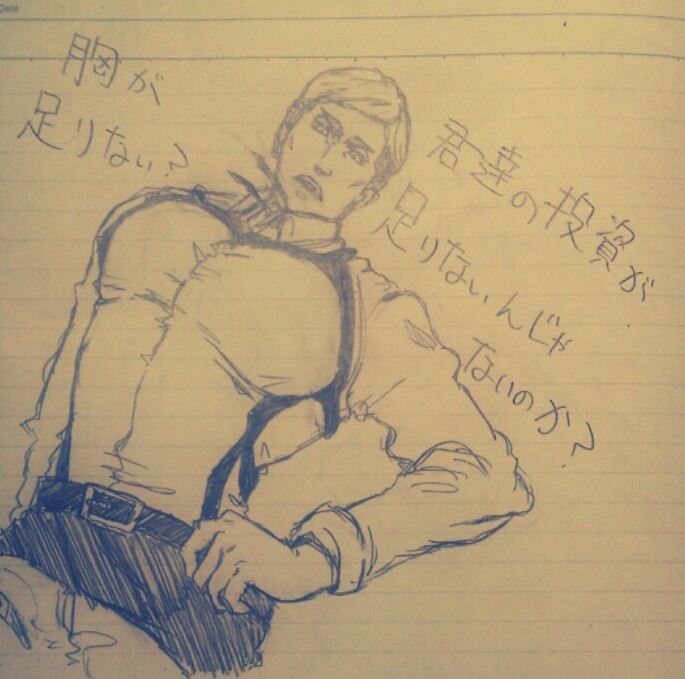 Date
胸が
足りない?
君達の投資が
足りないんじゃ
ないのか?